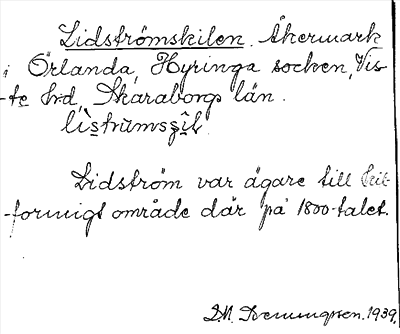 Lidströmskilen. Åkermark
i Örlanda, Hyringa socken, Vis-
te hd, Skaraborgs län.

Lidström var ägare till kil-
formigt område där på 1800-talet.
1939.